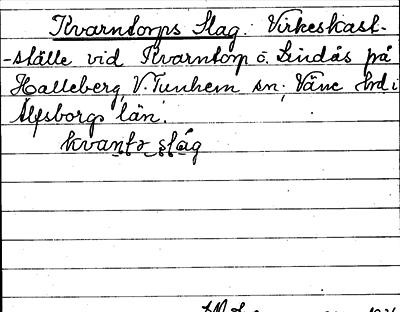 Kvarntorps Slag. Virkeskast-
-ställe vid Kvarntorp o. Lindås på
Halleberg, V. Tunhem sn; Väne hd i
Älfsborgs län.
kvantə slåg